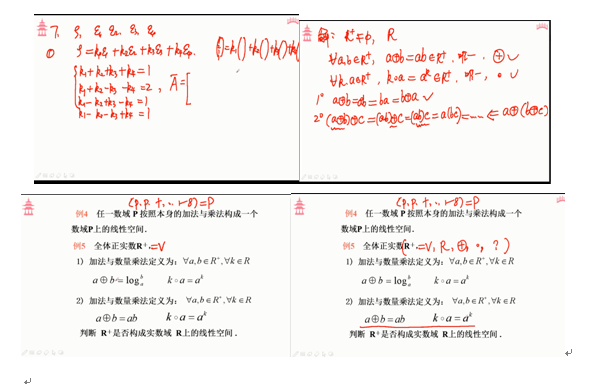 7. ξ, ε₁ ε₂. ε₃ ε₄
① ξ=k₁ε₁+k₂ε₂+k₃ε₃+k₄ε₄.
( )=k₁( )+k₂( )+k₃( )+k₄(
k₁+k₂+k₃+k₄=1
k₁+k₂-k₃-k₄=2 , Ā=[
k₁-k₂+k₃-k₄=1
k₁-k₂-k₃+k₄=1
解: R⁺≠φ, R
∀a,b∈R⁺, a⊕b=ab∈R⁺, 唯一, ⊕✓
∀k, a∈R⁺, k∘a=aᵏ∈R⁺, 唯一, ∘✓
1° a⊕b=ab=ba=b⊕a ✓
2° (a⊕b)⊕c=(ab)⊕c=(ab)c=a(bc)=……= a⊕(b⊕c)
例4 任一数域 P 按照本身的加法与乘法构成一个
数域P上的线性空间.
例5 全体正实数R⁺.=V
1) 加法与数量乘法定义为: ∀a,b∈R⁺,∀k∈R
a⊕b=logₐᵇ k∘a=aᵏ
2) 加法与数量乘法定义为: ∀a,b∈R⁺,∀k∈R
a⊕b=ab k∘a=aᵏ
判断 R⁺是否构成实数域 R上的线性空间.
例4 任一数域 P 按照本身的加法与乘法构成一个
数域P上的线性空间.
例5 全体正实数(R⁺.=V, R, ⊕, ∘, ?)
1) 加法与数量乘法定义为: ∀a,b∈R⁺,∀k∈R
a⊕b=logₐᵇ k∘a=aᵏ
2) 加法与数量乘法定义为: ∀a,b∈R⁺,∀k∈R
a⊕b=ab k∘a=aᵏ
判断 R⁺是否构成实数域 R上的线性空间.